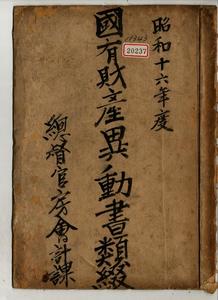 昭和十六年度
國有財産異動書類綴
總督官房會計課
11343
20237